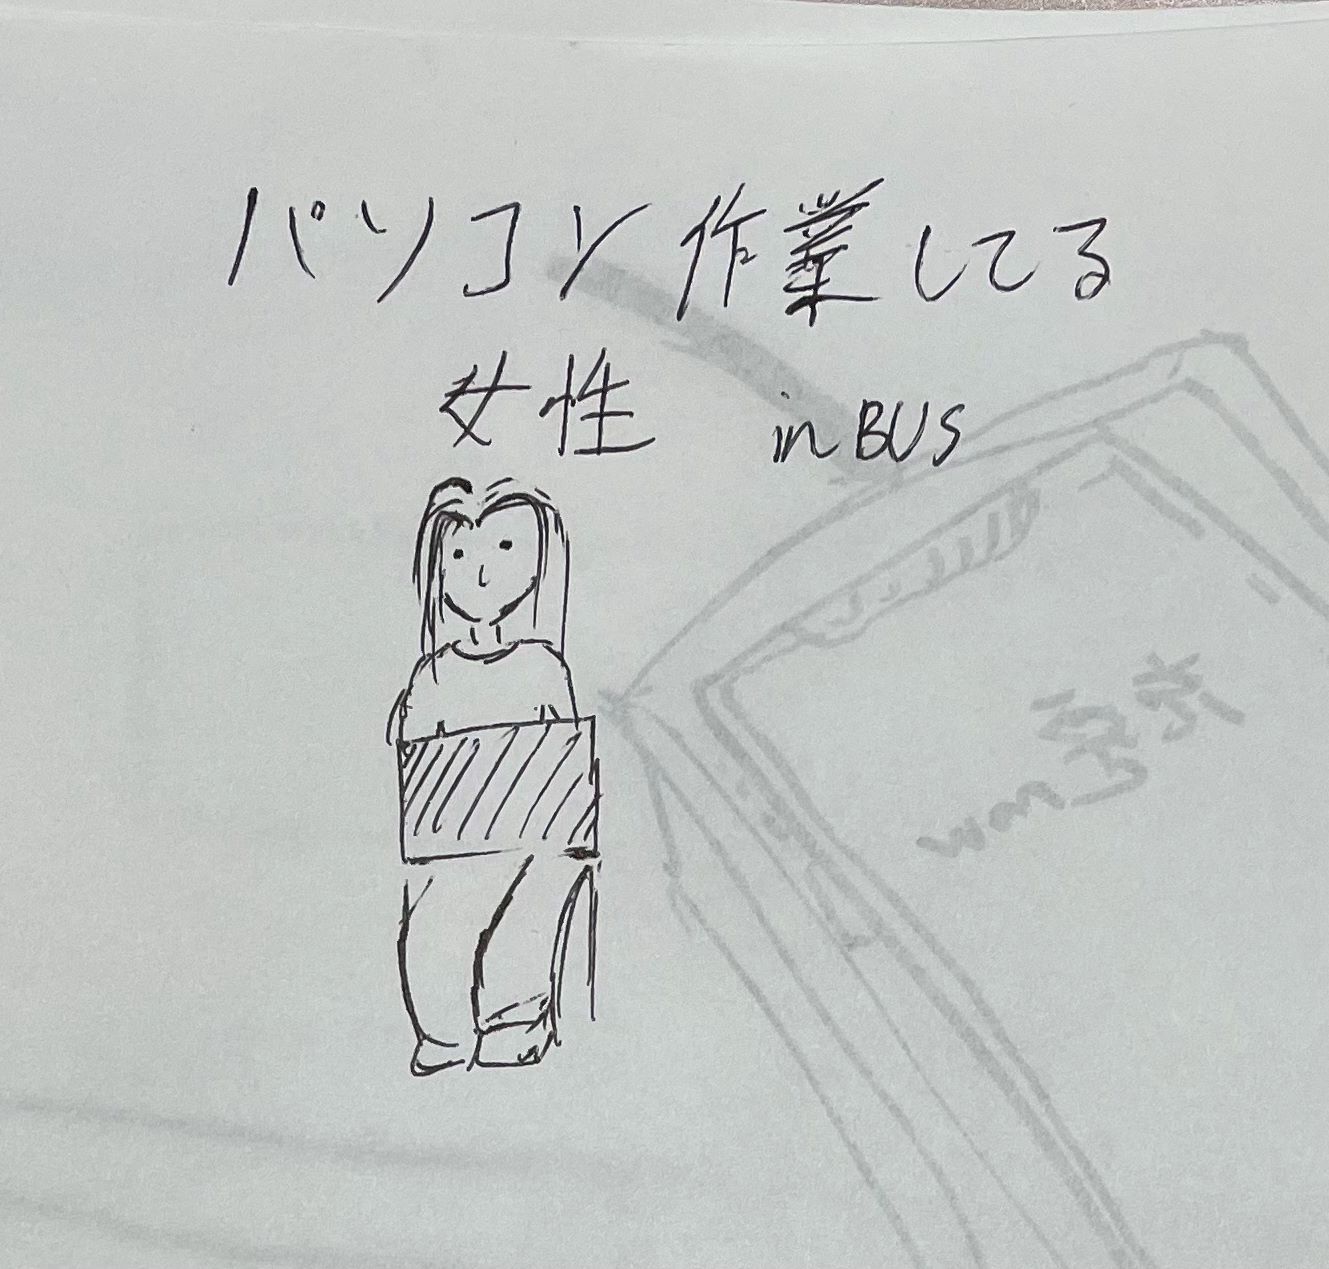 パソコン作業してる
女性 in BUS